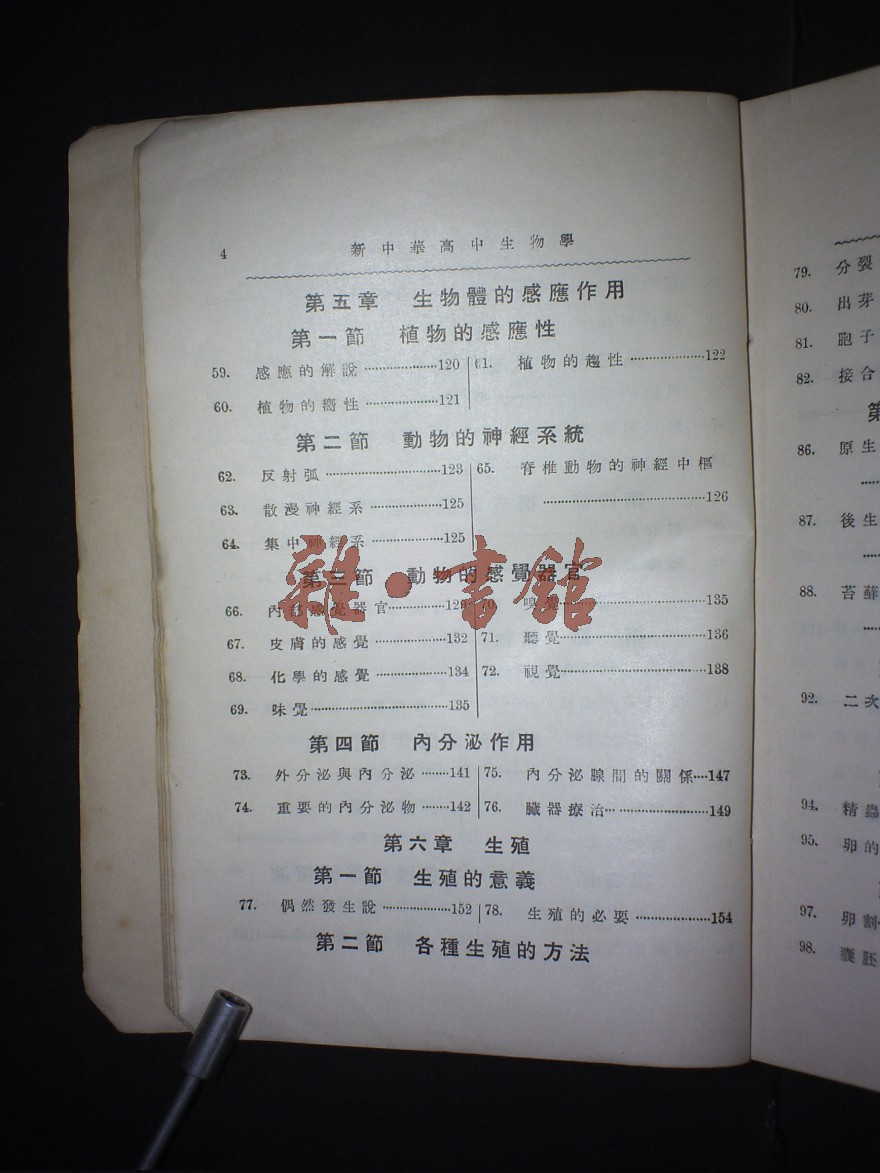 4 新中華高中生物學
第五章 生物體的感應作用
第一節 植物的感應性
59. 感應的解說 ⋯⋯⋯⋯120
60. 植物的嚮性 ⋯⋯⋯⋯121
61. 植物的趨性 ⋯⋯⋯⋯122
第二節 動物的神經系統
62. 反射弧 ⋯⋯⋯⋯123
63. 散漫神經系 ⋯⋯⋯⋯125
64. 集中神經系 ⋯⋯⋯⋯125
65. 脊椎動物的神經中樞
⋯⋯⋯⋯126
第三節 動物的感覺器官
66. 內部感覺器官⋯⋯⋯⋯129
67. 皮膚的感覺 ⋯⋯⋯⋯132
68. 化學的感覺 ⋯⋯⋯⋯134
69. 味覺⋯⋯⋯⋯135
70. 嗅覺⋯⋯⋯⋯135
71. 聽覺⋯⋯⋯⋯136
72. 視覺⋯⋯⋯⋯138
雜·書館
第四節 內分泌作用
73. 外分泌與內分泌 ⋯⋯141
74. 重要的內分泌物 ⋯⋯142
75. 內分泌腺間的關係⋯⋯147
76. 臟器療治⋯⋯⋯⋯149
第六章 生殖
第一節 生殖的意義
77. 偶然發生說 ⋯⋯⋯⋯152
78. 生殖的必要 ⋯⋯⋯⋯154
第二節 各種生殖的方法
79. 分裂
80. 出芽
81. 胞子
82. 接合
第
86. 原生
87. 後生
88. 苔蘚
92. 二次
94. 精蟲
95. 卵的
97. 卵割
98. 囊胚